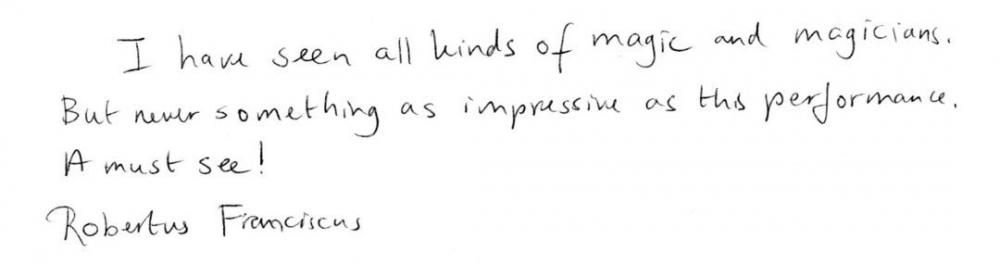 I have seen all kinds of magic and magicians.
But never something as impressive as this performance.
A must see!
Robertus Franciscus